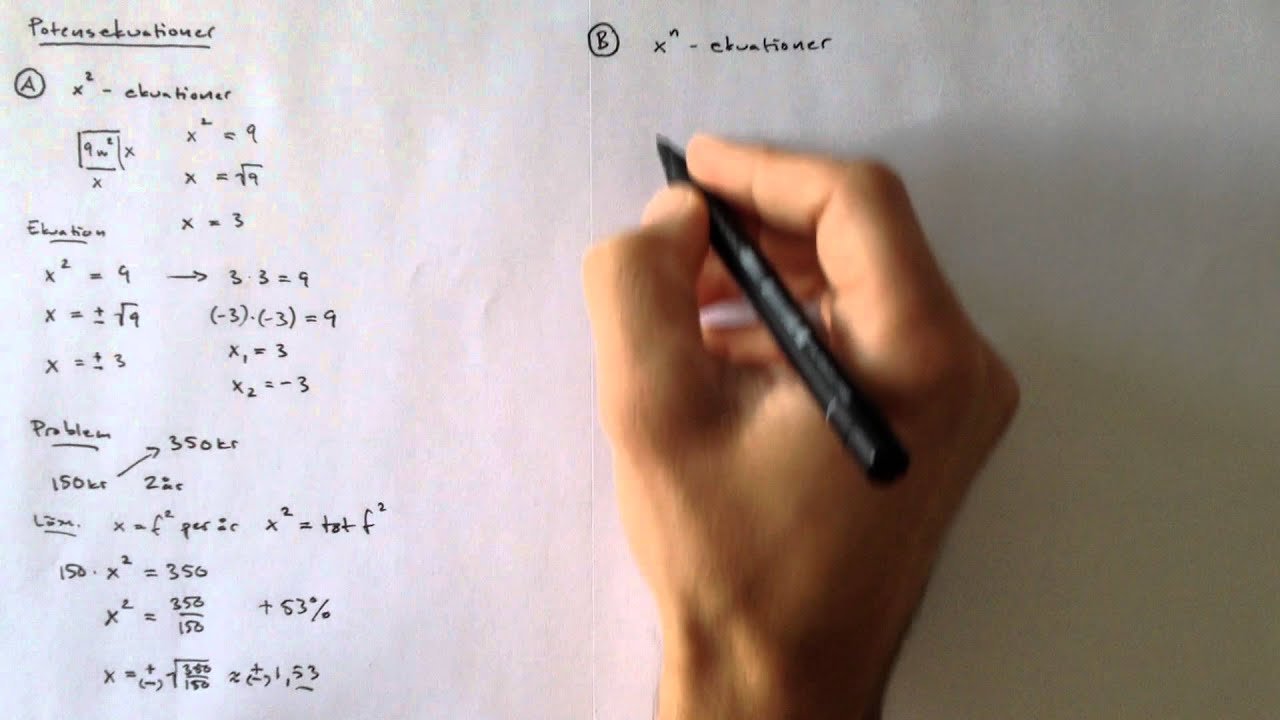 Potensekvationer
Ⓐ x² - ekvationer
9m² x
x
x² = 9
x = √9
x = 3
Ekvation
x² = 9 → 3·3 = 9
x = ±√9 (-3)·(-3) = 9
x = ±3 x₁ = 3
x₂ = -3
Problem
350kr
150kr 2år
Lösn. x = f² per år x² = tot f²
150·x² = 350
x² = 350/150 +53%
x = +(-)√350/150 ≈ +(-)1,53
Ⓑ xⁿ - ekvationer